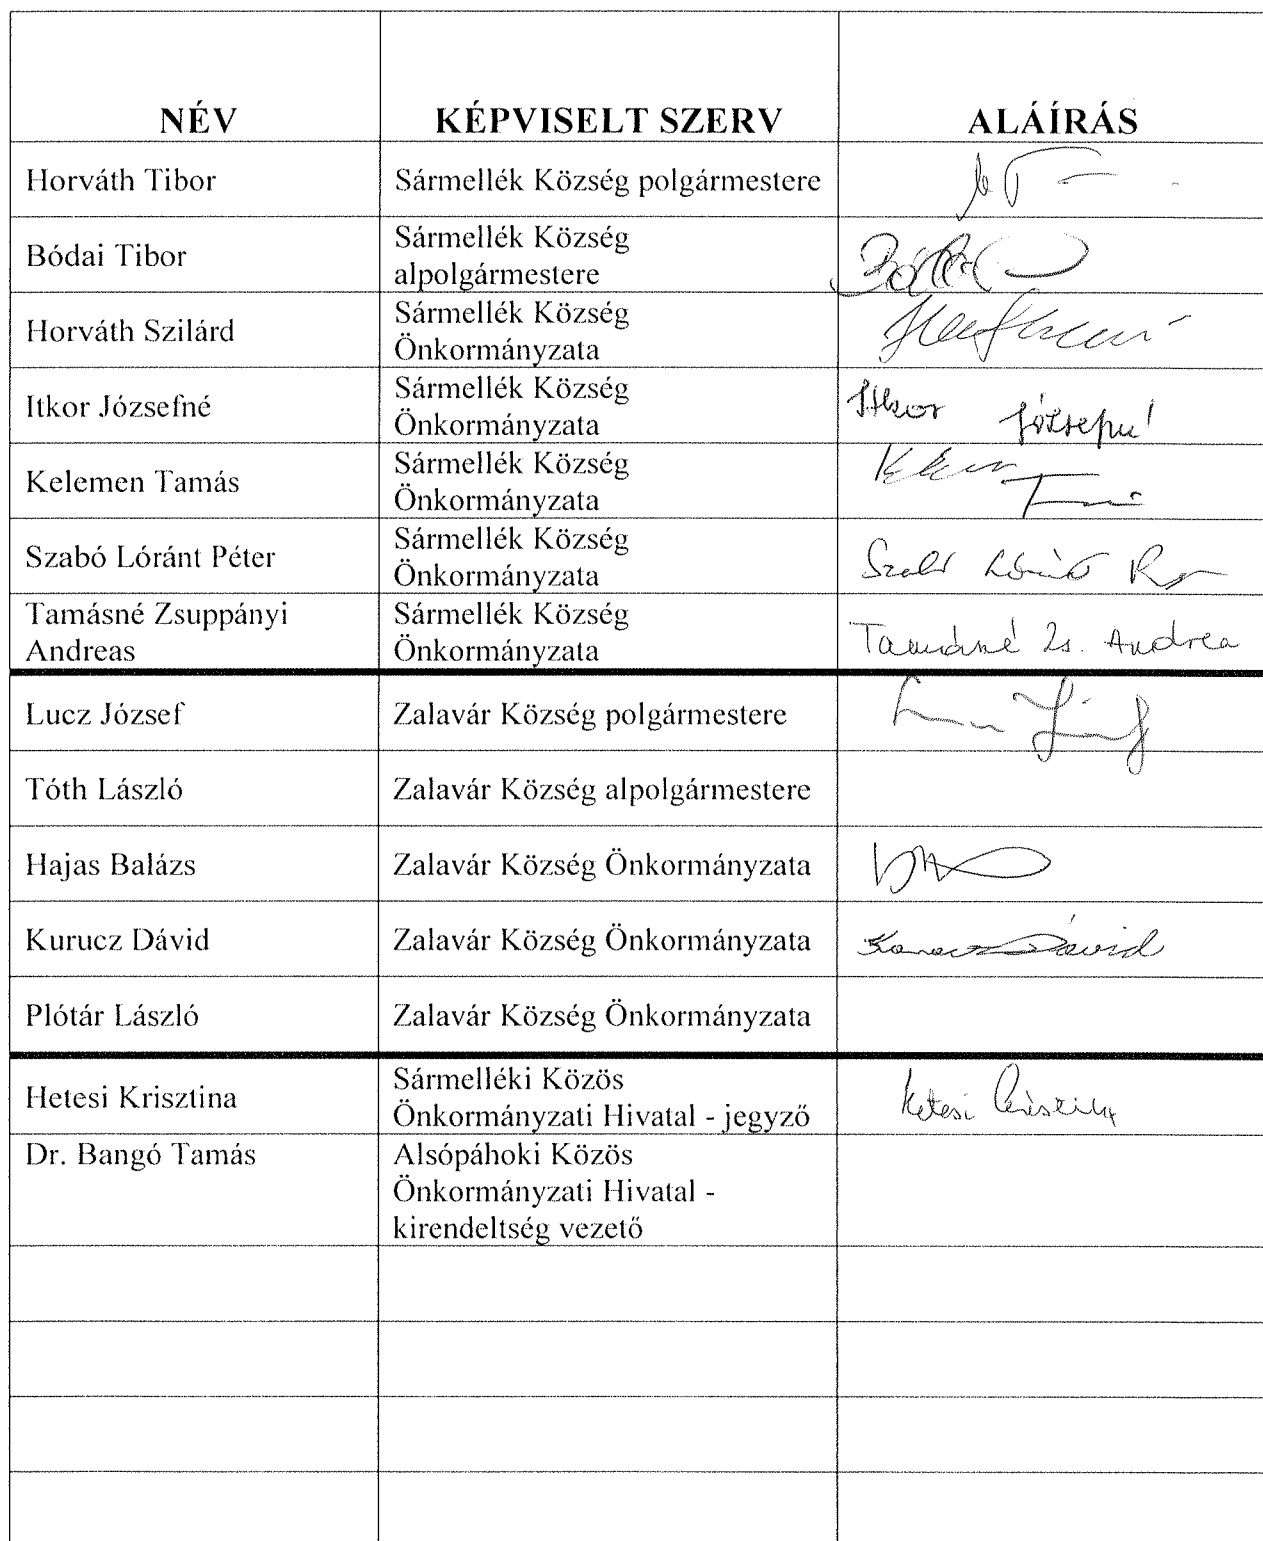 NÉV KÉPVISELT SZERV ALÁÍRÁS
Horváth Tibor Sármellék Község polgármestere
Bódai Tibor Sármellék Község
alpolgármestere
Horváth Szilárd Sármellék Község
Önkormányzata
Itkor Józsefné Sármellék Község
Önkormányzata Itkor Józsefné
Kelemen Tamás Sármellék Község
Önkormányzata
Szabó Lóránt Péter Sármellék Község
Önkormányzata Szabó Lóránt
Tamásné Zsuppányi Sármellék Község
Andreas Önkormányzata Tamásné Zs. Andrea
Lucz József Zalavár Község polgármestere
Tóth László Zalavár Község alpolgármestere
Hajas Balázs Zalavár Község Önkormányzata
Kurucz Dávid Zalavár Község Önkormányzata Kurucz Dávid
Plótár László Zalavár Község Önkormányzata
Hetesi Krisztina Sármelléki Közös
Önkormányzati Hivatal - jegyző Hetesi Krisztina
Dr. Bangó Tamás Alsópáhoki Közös
Önkormányzati Hivatal -
kirendeltség vezető